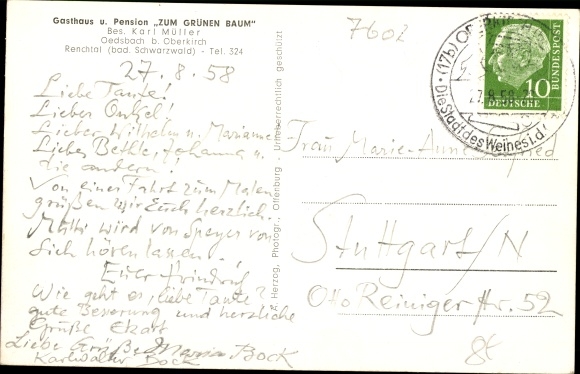 Gasthaus u. Pension „ZUM GRÜNEN BAUM"
Bes. Karl Müller
Oedsbach b. Oberkirch
Renchtal (bad. Schwarzwald) - Tel. 324
27.8.58
Liebe Tante!
Lieber Onkel!
Lieber Wilhelm u. Marianne
Liebes Bethle, Johanna u.
die andern!
Von einer Fahrt zum Malen
grüßen wir Euch herzlich.
Mutti wird von Speyer von
sich hören lassen.
Euer
Wie geht es, liebe Tante?
gute Besserung und herzliche
Grüße Ekart
Liebe Grüße Maria Bock
Karlwalter Bock
A. Herzog, Photogr., Offenburg - Urheberrechtlich geschützt
7602
(17b)
27.8.58
Die Stadt des Weines i.d.
10
DEUTSCHE
BUNDESPOST
Frau Marie-Anne
Stuttgart/N
Otto Reiniger Str. 52